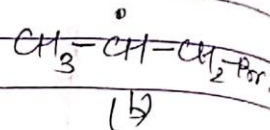 CH₃-ĊH-CH₂-Br.
(b)